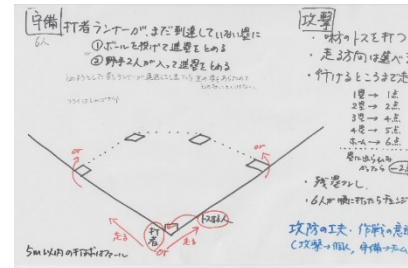 守備 打者ランナーが、まだ到達していない塁に
6人
①ボールを投げて進塁をとめる
②野手2人が入って進塁をとめる
or
or
走る
打者
or
走る
トスする人
5m以内の打球はファール
攻撃
・味方のトスを打つ
・走る方向は選べ
・行けるところまで走
1塁→1点
2塁→2点
3塁→4点
4塁→5点
ホーム→6点
・残塁なし
・6人が順に打ったらチェンジ
攻防の工夫・作戦の意
(攻撃→個人、守備→チーム